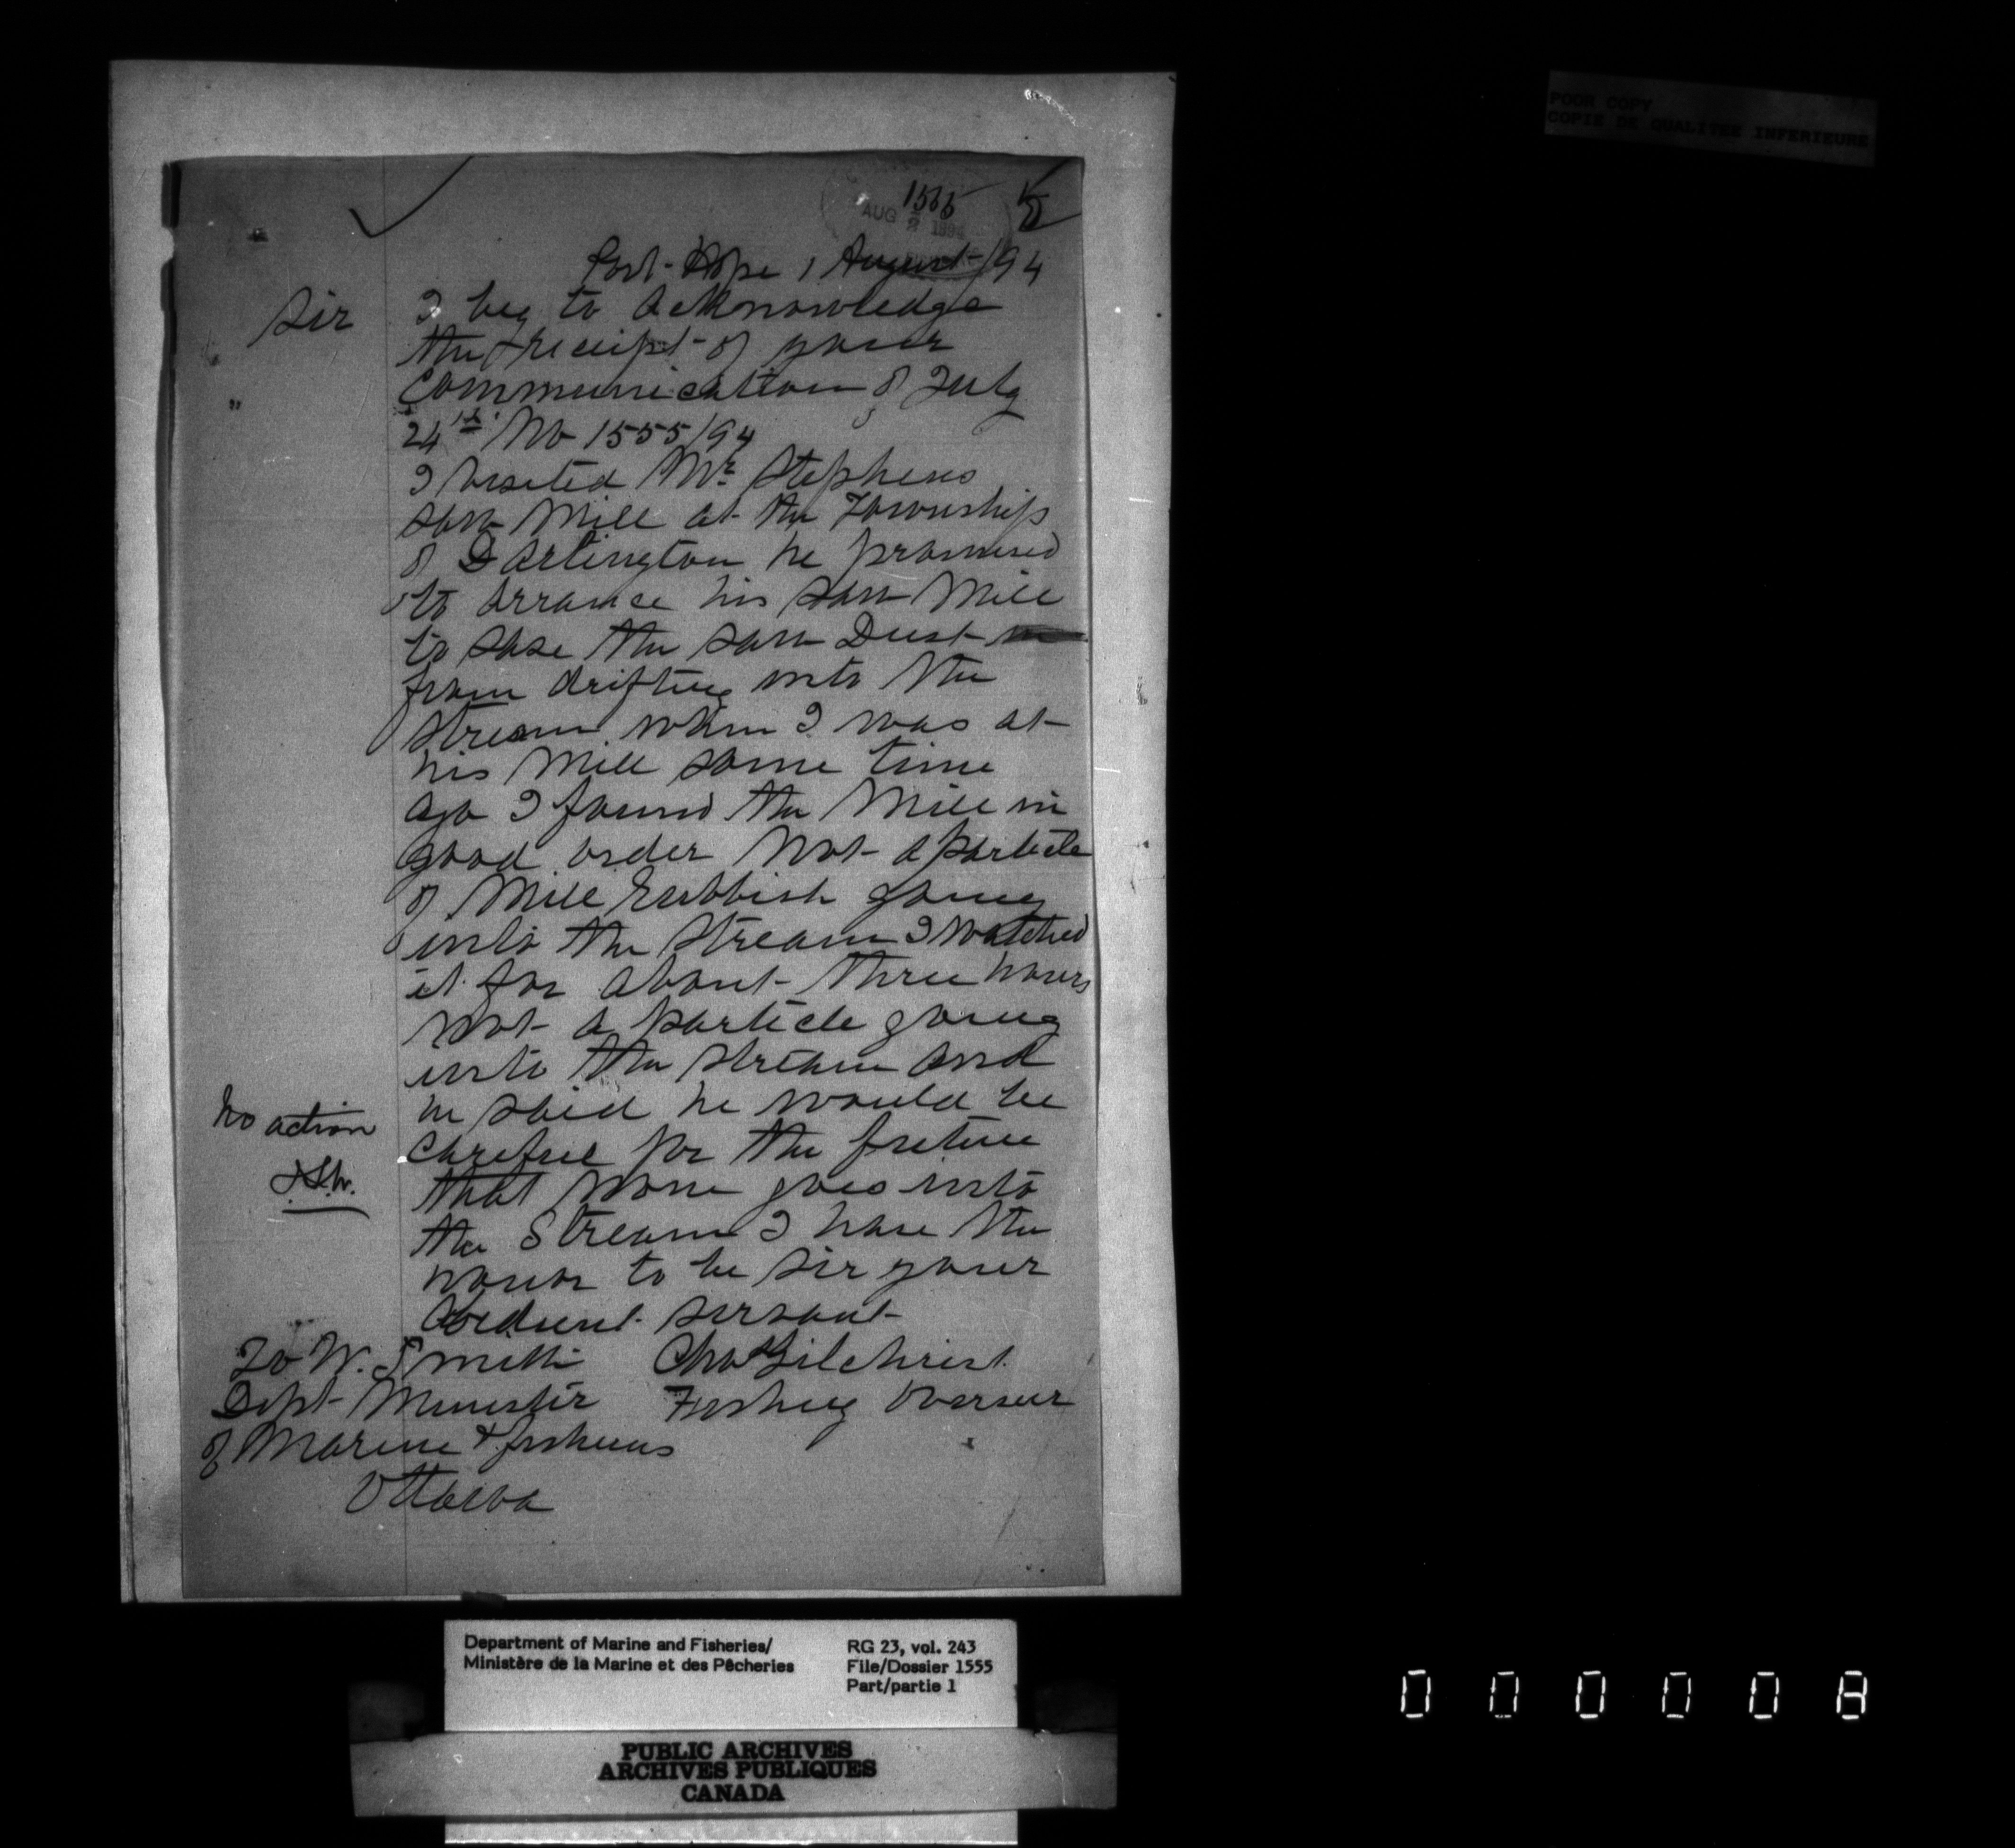 POOR COPY
COPIE DE QUALITEE INFERIEURE
1555
5
AUG 2 1894
Port-Hope 1 August /94
Sir I beg to acknowledge
the receipt of your
communication of July
24th No 1555/94
I visited Mr Stephens
saw Mill at the Township
of Darlington he promised
to arrance his saw Mill
to save the saw Dust
from drifting into the
stream when I was at
his Mill some time
ago I found the Mill in
good order Not a particle
of Mill Rubbish going
into the stream I watched
it for about three hours
Not a particle going
into the stream and
he said he would be
careful for the future
that None goes into
the Stream I have the
honor to be sir your
obedient servant
No action
To W. Smith Chas Gilchrist
Dept Minister Fishery Overseer
of Marine & fisheries
Ottawa
Department of Marine and Fisheries/
Ministère de la Marine et des Pêcheries
RG 23, vol. 243
File/Dossier 1555
Part/partie 1
PUBLIC ARCHIVES
ARCHIVES PUBLIQUES
CANADA
000008